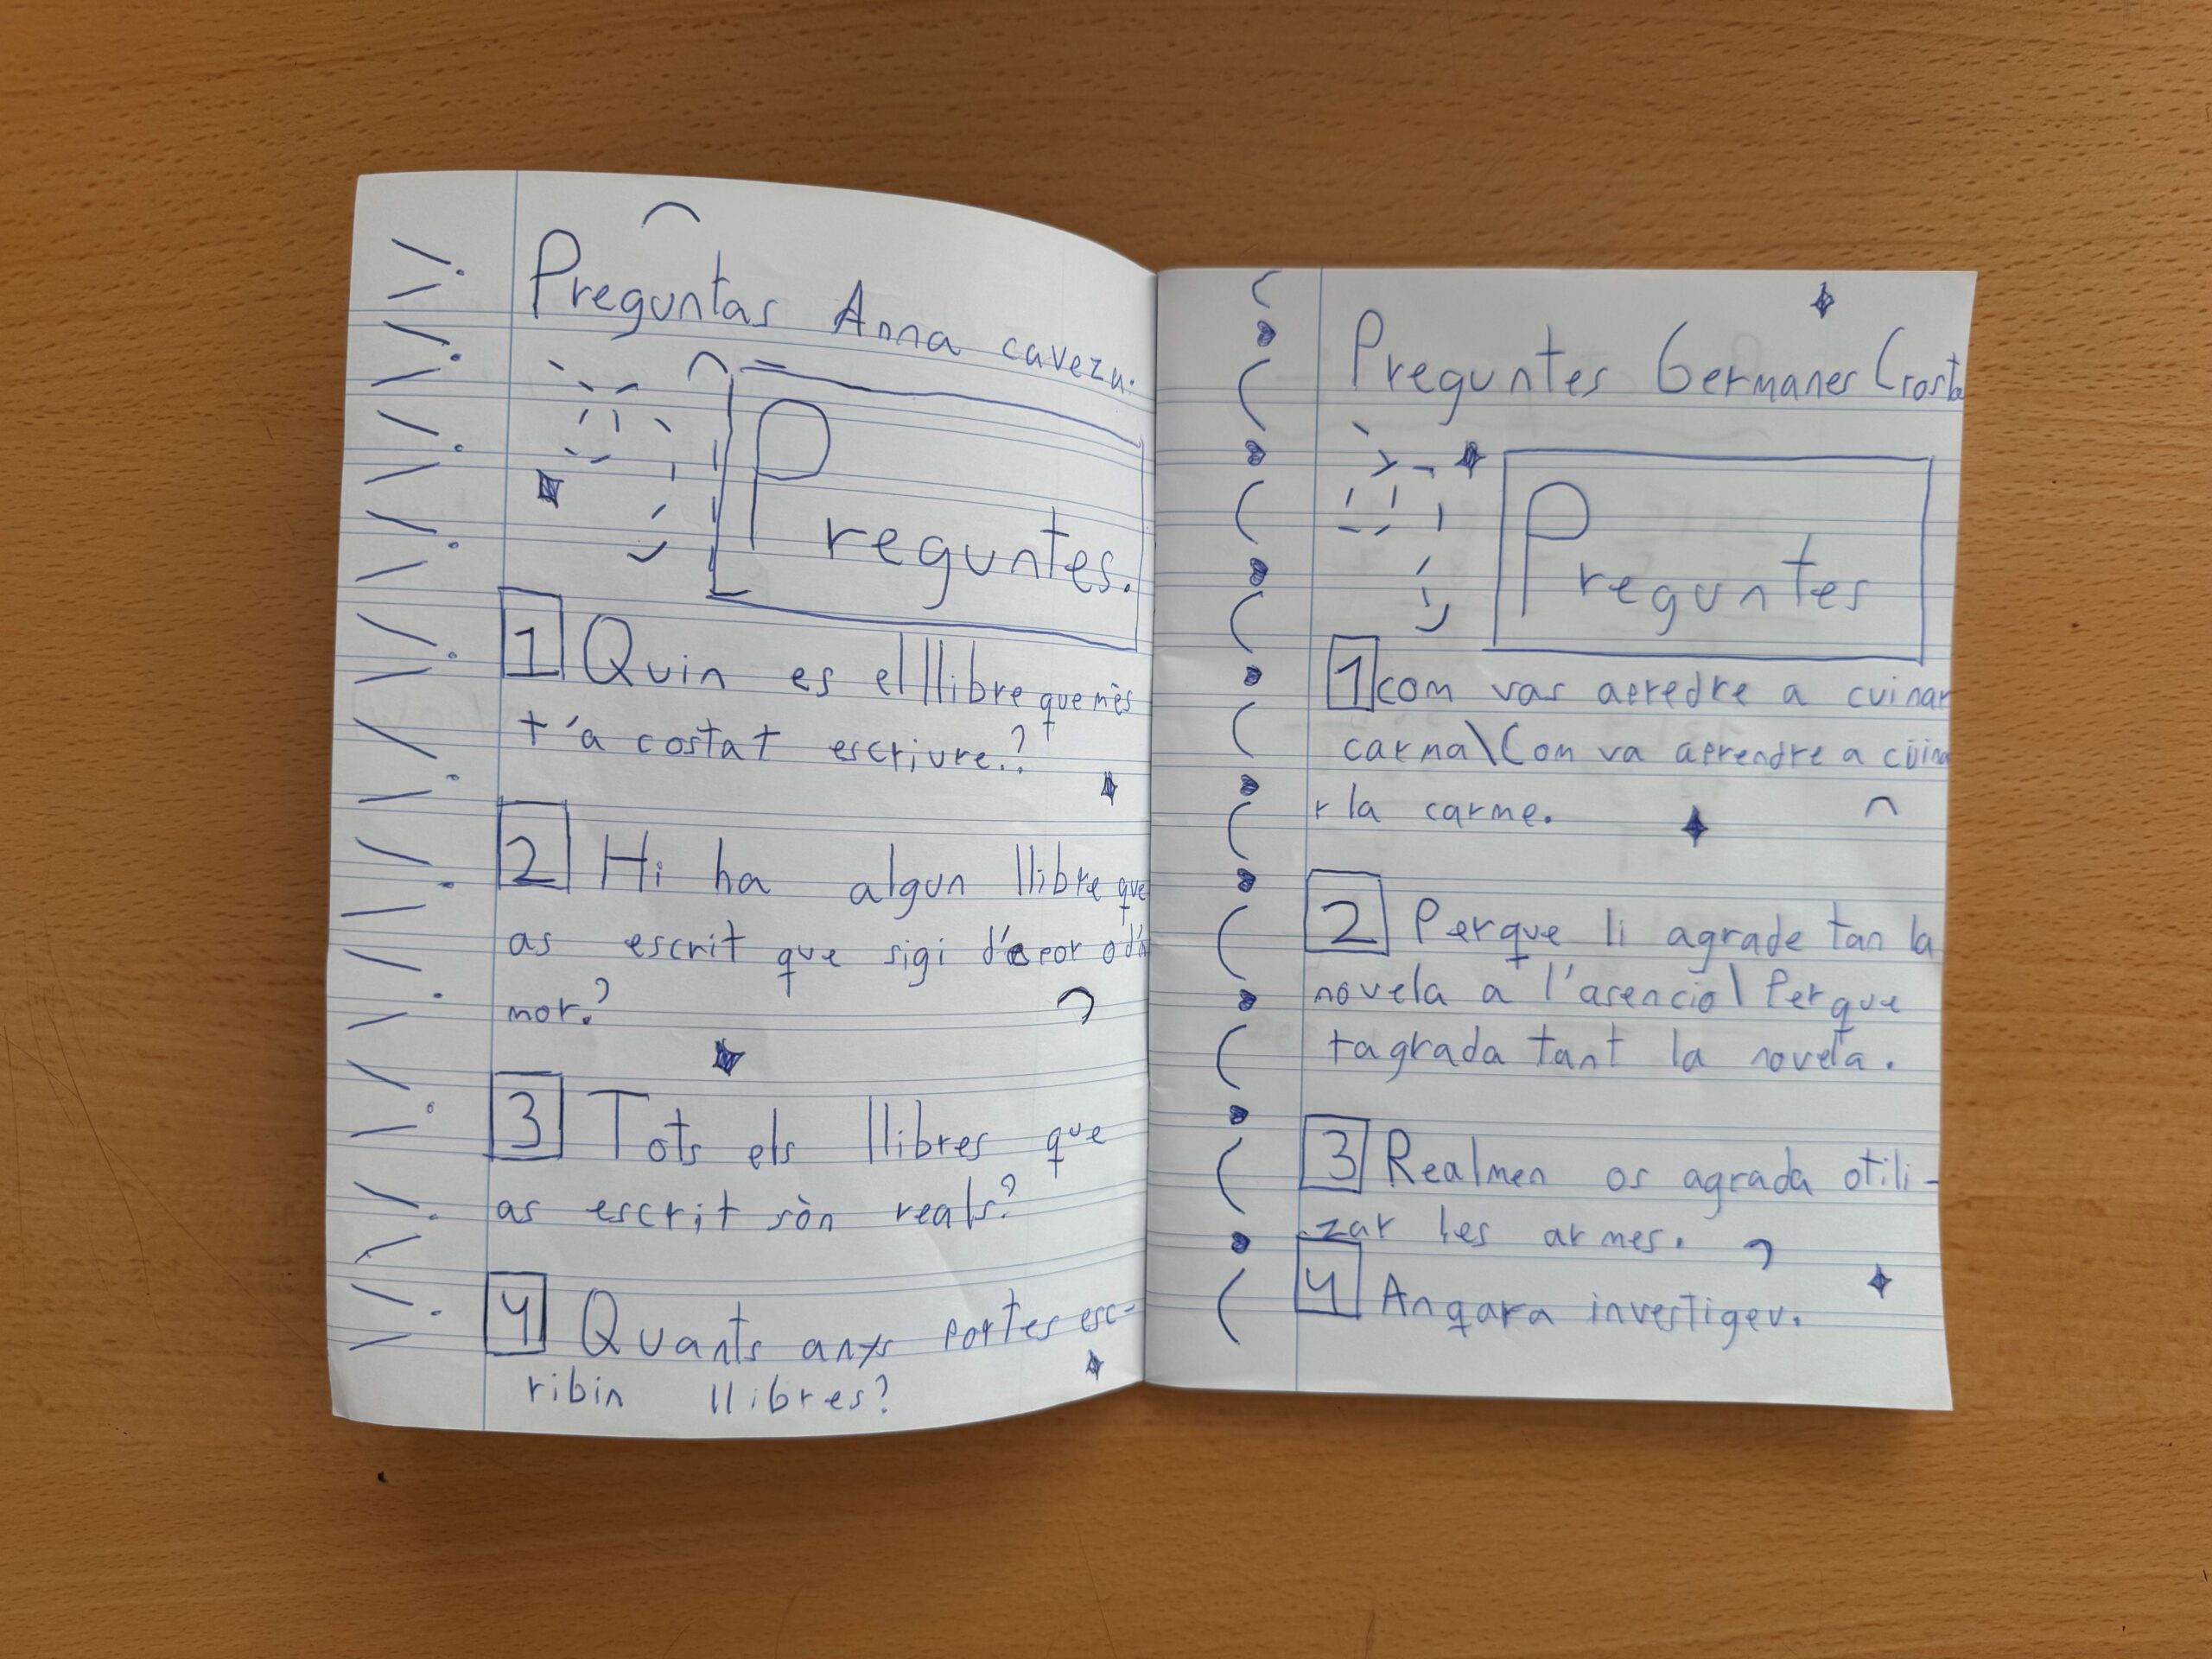 Preguntas Anna cavezu.
Preguntes.
1 Quin es el llibre que mès
t'a costat escriure?
2 Hi ha algun llibre que
as escrit que sigi de por o d'a
mor?
3 Tots els llibres que
as escrit sòn reals?
4 Quants anys portes esc-
ribin llibres?
Preguntes Germanes Crosta
Preguntes
1 com vas apredre a cuinar
carma\Com va aprendre a cuina
r la carme.
2 Perque li agrade tan la
novela a l'asencio\ Perque
tagrada tant la novela.
3 Realmen os agrada otili-
zar les armes.
4 Anqara investigeu.